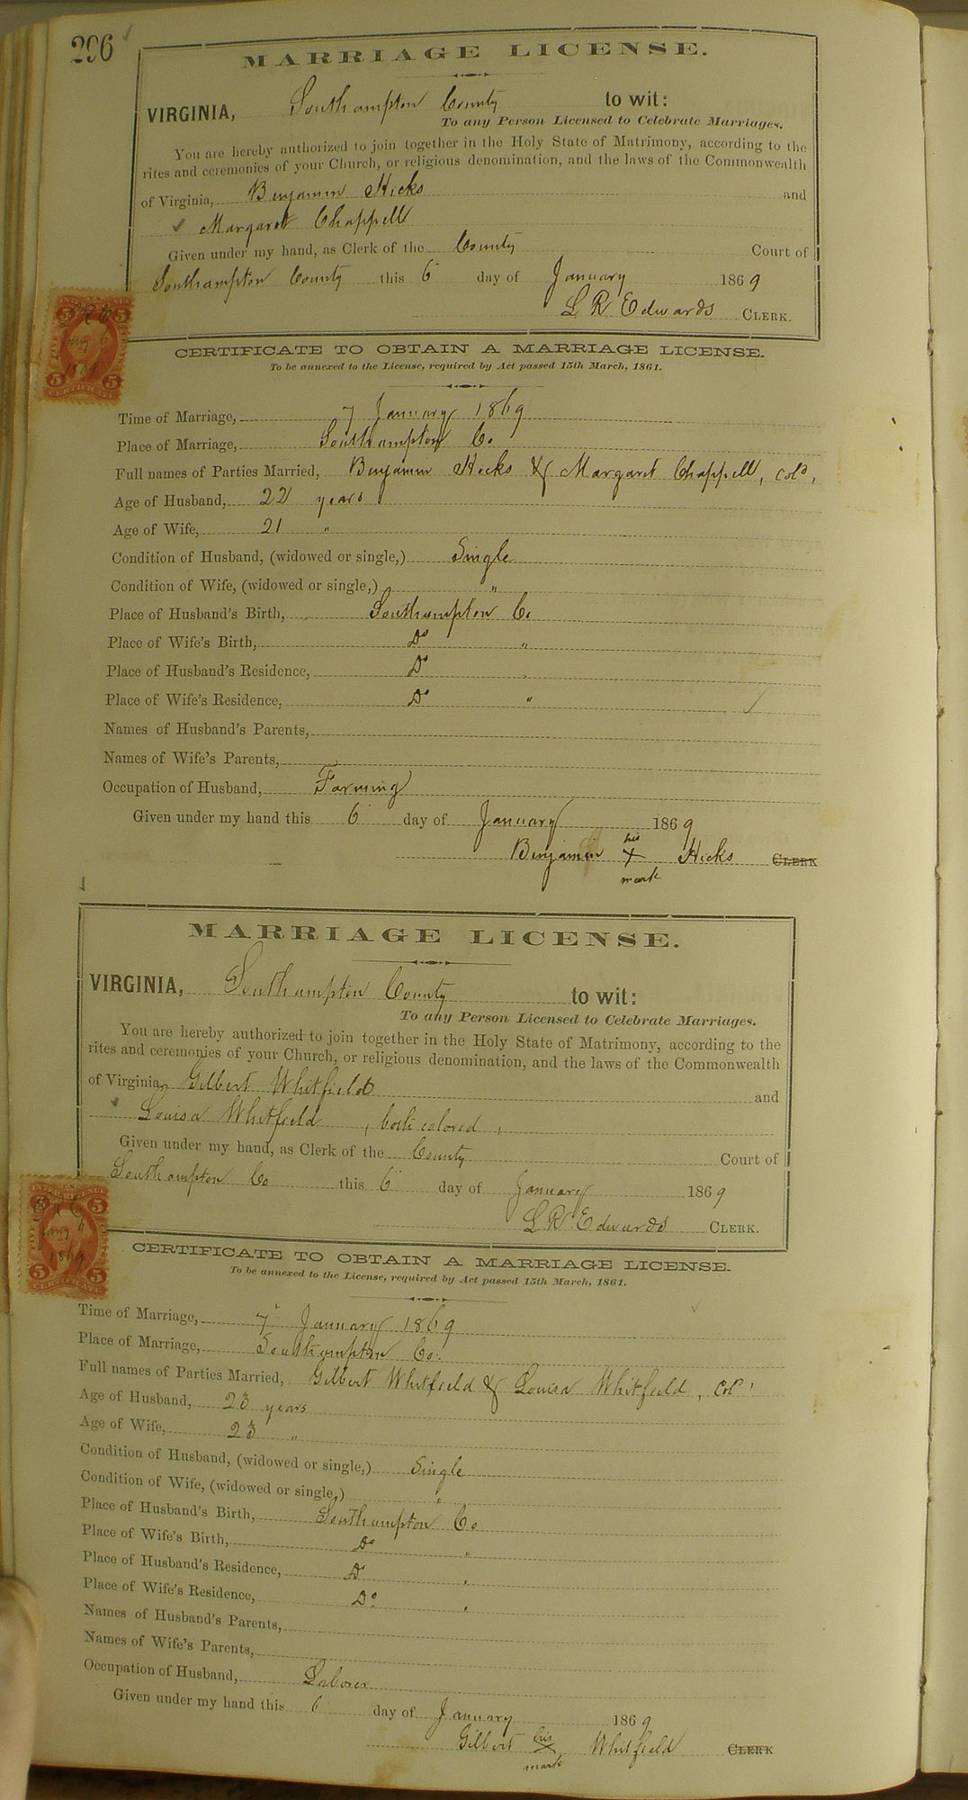 296
MARRIAGE LICENSE.
VIRGINIA, Southampton County to wit:
To any Person Licensed to Celebrate Marriages.
You are hereby authorized to join together in the Holy State of Matrimony, according to the
rites and ceremonies of your Church, or religious denomination, and the laws of the Commonwealth
of Virginia, Benjamin Hicks and
Margaret Chappell
Given under my hand, as Clerk of the County Court of
Southampton County this 6 day of January 1869
L R Edwards CLERK.
CERTIFICATE TO OBTAIN A MARRIAGE LICENSE.
To be annexed to the License, required by Act passed 15th March, 1861.
Time of Marriage, 7 January 1869
Place of Marriage, Southampton Co
Full names of Parties Married, Benjamin Hicks & Margaret Chappell, cold,
Age of Husband, 22 years
Age of Wife, 21 "
Condition of Husband, (widowed or single,) Single
Condition of Wife, (widowed or single,) "
Place of Husband's Birth, Southampton Co
Place of Wife's Birth, Do "
Place of Husband's Residence, Do "
Place of Wife's Residence, Do "
Names of Husband's Parents,
Names of Wife's Parents,
Occupation of Husband, Farming
Given under my hand this 6 day of January 1869
Benjamin his X mark Hicks CLERK
MARRIAGE LICENSE.
VIRGINIA, Southampton County to wit:
To any Person Licensed to Celebrate Marriages.
You are hereby authorized to join together in the Holy State of Matrimony, according to the
rites and ceremonies of your Church, or religious denomination, and the laws of the Commonwealth
of Virginia, Gilbert Whitfield and
Louisa Whitfield, both colored,
Given under my hand, as Clerk of the County Court of
Southampton Co this 6 day of January 1869
L R Edwards CLERK.
CERTIFICATE TO OBTAIN A MARRIAGE LICENSE.
To be annexed to the License, required by Act passed 15th March, 1861.
Time of Marriage, 7 January 1869
Place of Marriage, Southampton Co.
Full names of Parties Married, Gilbert Whitfield & Louisa Whitfield, cold
Age of Husband, 23 years
Age of Wife, 23 "
Condition of Husband, (widowed or single,) Single
Condition of Wife, (widowed or single,) "
Place of Husband's Birth, Southampton Co
Place of Wife's Birth, Do "
Place of Husband's Residence, Do "
Place of Wife's Residence, Do "
Names of Husband's Parents,
Names of Wife's Parents,
Occupation of Husband, Laborer
Given under my hand this 6 day of January 1869
Gilbert his X mark Whitfield CLERK